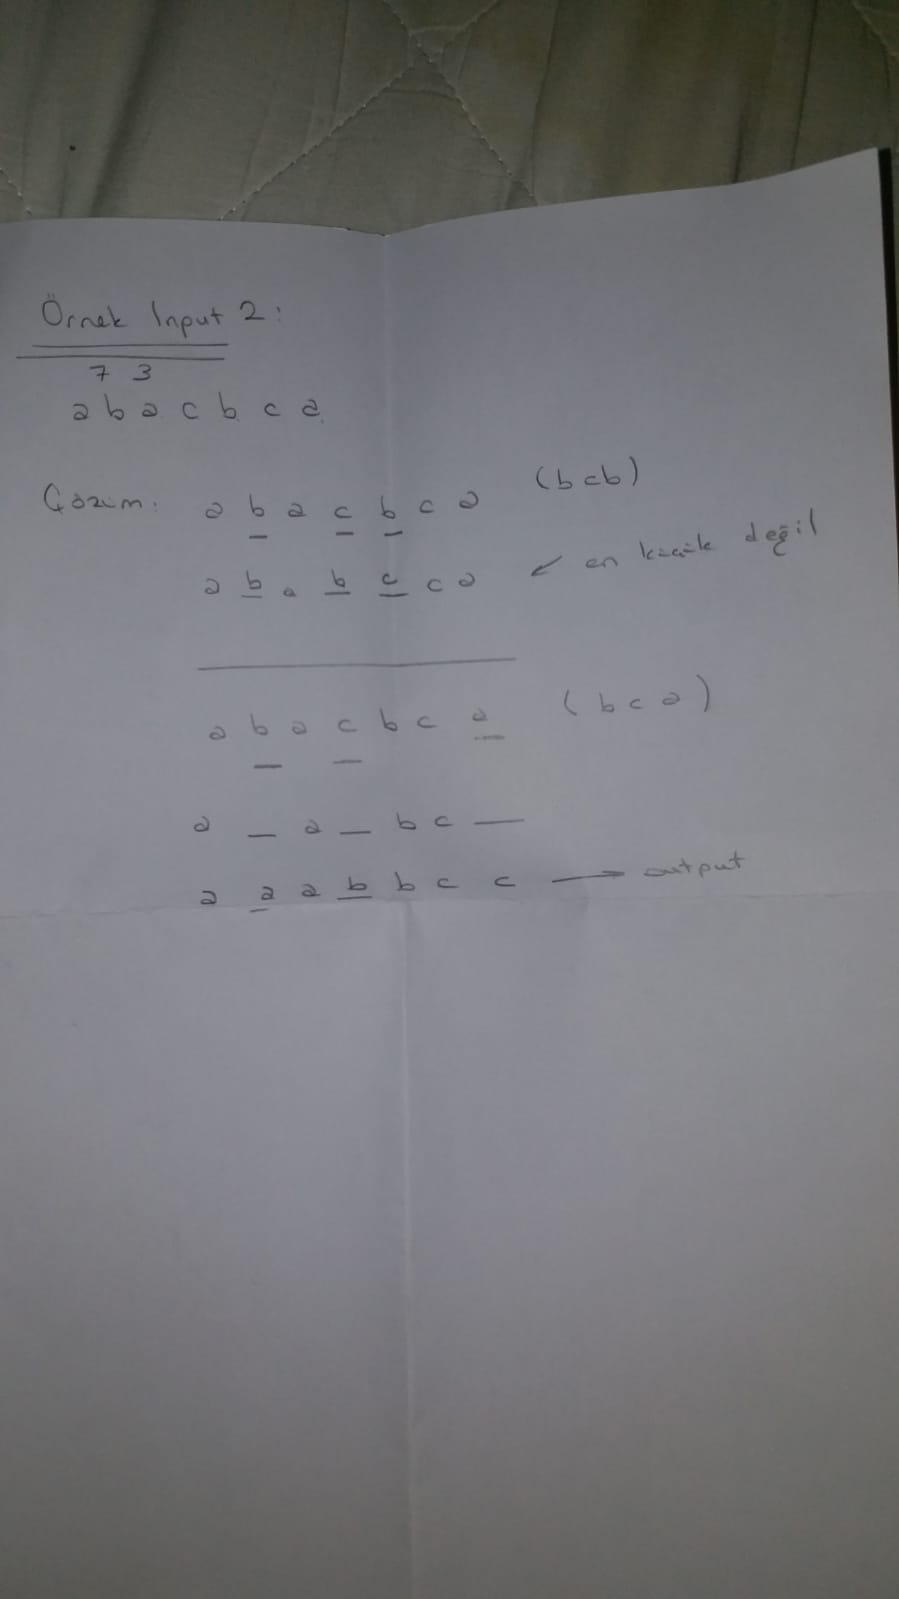 Örnek Input 2:
7 3
a b a c b c a
Çözüm: a b a c b c a (bcb)
a b a b c c a ↙ en küçük değil
a b a c b c a (bca)
a _ a _ b c _
a a a b b c c → output